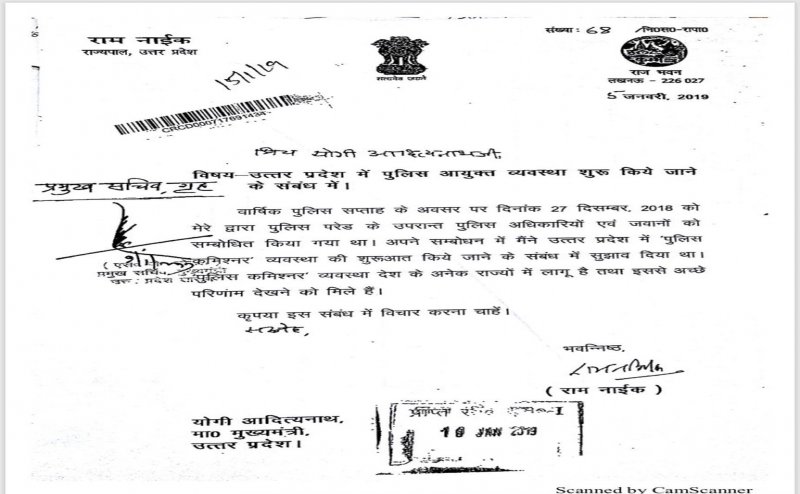 राम नाईक
राज्यपाल, उत्तर प्रदेश
सत्यमेव जयते
संख्या: 68 /नि०स०-रापा०
राज भवन
लखनऊ - 226 027
5 जनवरी, 2019
15/1/19
CRCD000717691434
प्रिय योगी आदित्यनाथजी,
विषय—उत्तर प्रदेश में पुलिस आयुक्त व्यवस्था शुरू किये जाने
के संबंध में।
प्रमुख सचिव, गृह
वार्षिक पुलिस सप्ताह के अवसर पर दिनांक 27 दिसम्बर, 2018 को
मेरे द्वारा पुलिस परेड के उपरान्त पुलिस अधिकारियों एवं जवानों को
सम्बोधित किया गया था। अपने सम्बोधन में मैंने उत्तर प्रदेश में 'पुलिस
कमिश्नर' व्यवस्था की शुरूआत किये जाने के संबंध में सुझाव दिया था।
'पुलिस कमिश्नर' व्यवस्था देश के अनेक राज्यों में लागू है तथा इससे अच्छे
परिणाम देखने को मिले हैं।
प्रमुख सचिव,
कृपया इस संबंध में विचार करना चाहें।
सस्नेह,
भवन्निष्ठ,
राम नाईक
( राम नाईक )
योगी आदित्यनाथ,
मा० मुख्यमंत्री,
उत्तर प्रदेश।
10 JAN 2019
Scanned by CamScanner